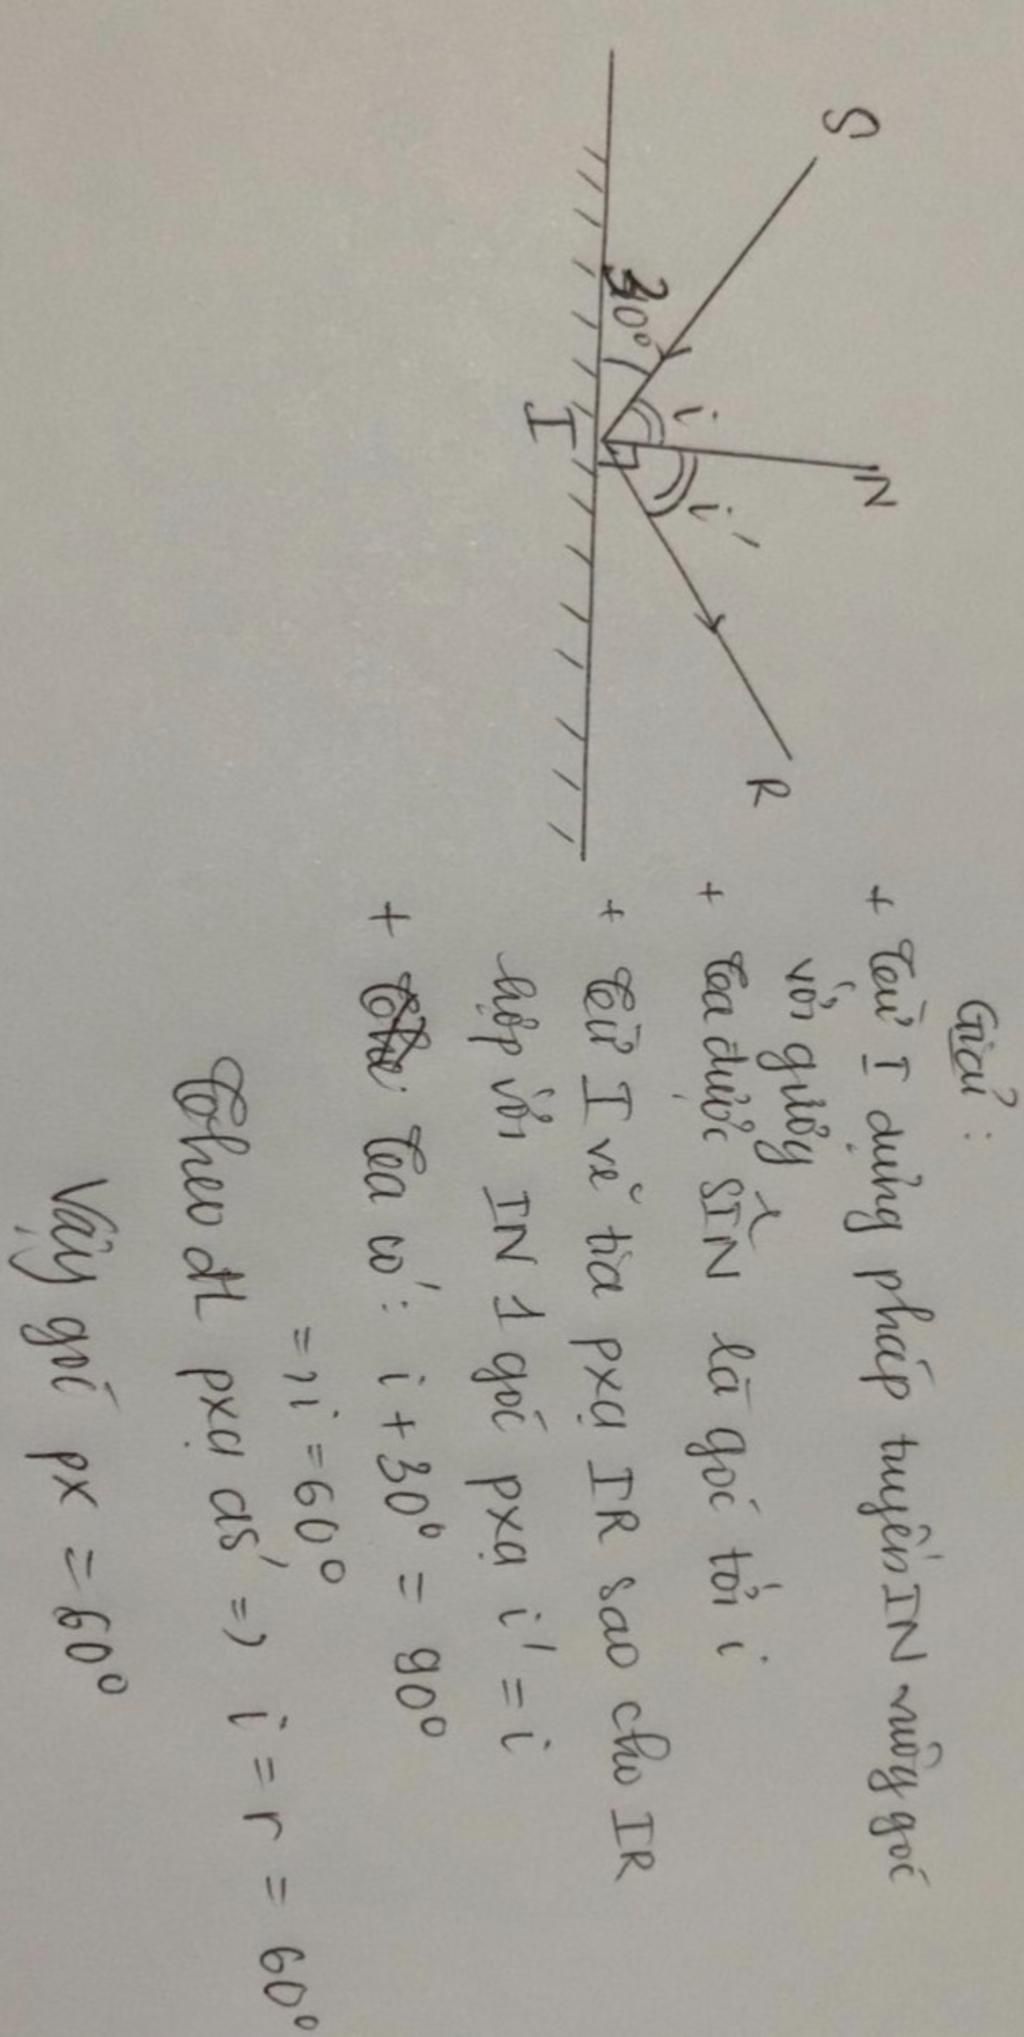 S
N
R
30°
i
i'
I
Giải:
+ Từ I dựng pháp tuyến IN vuông góc
với gương
+ Ta được SIN là góc tới i
+ Từ I vẽ tia pxạ IR sao cho IR
hợp với IN 1 góc pxạ i' = i
+ Ta có: i + 30° = 90°
=> i = 60°
Theo đl pxạ as' => i = r = 60°
Vậy góc px = 60°